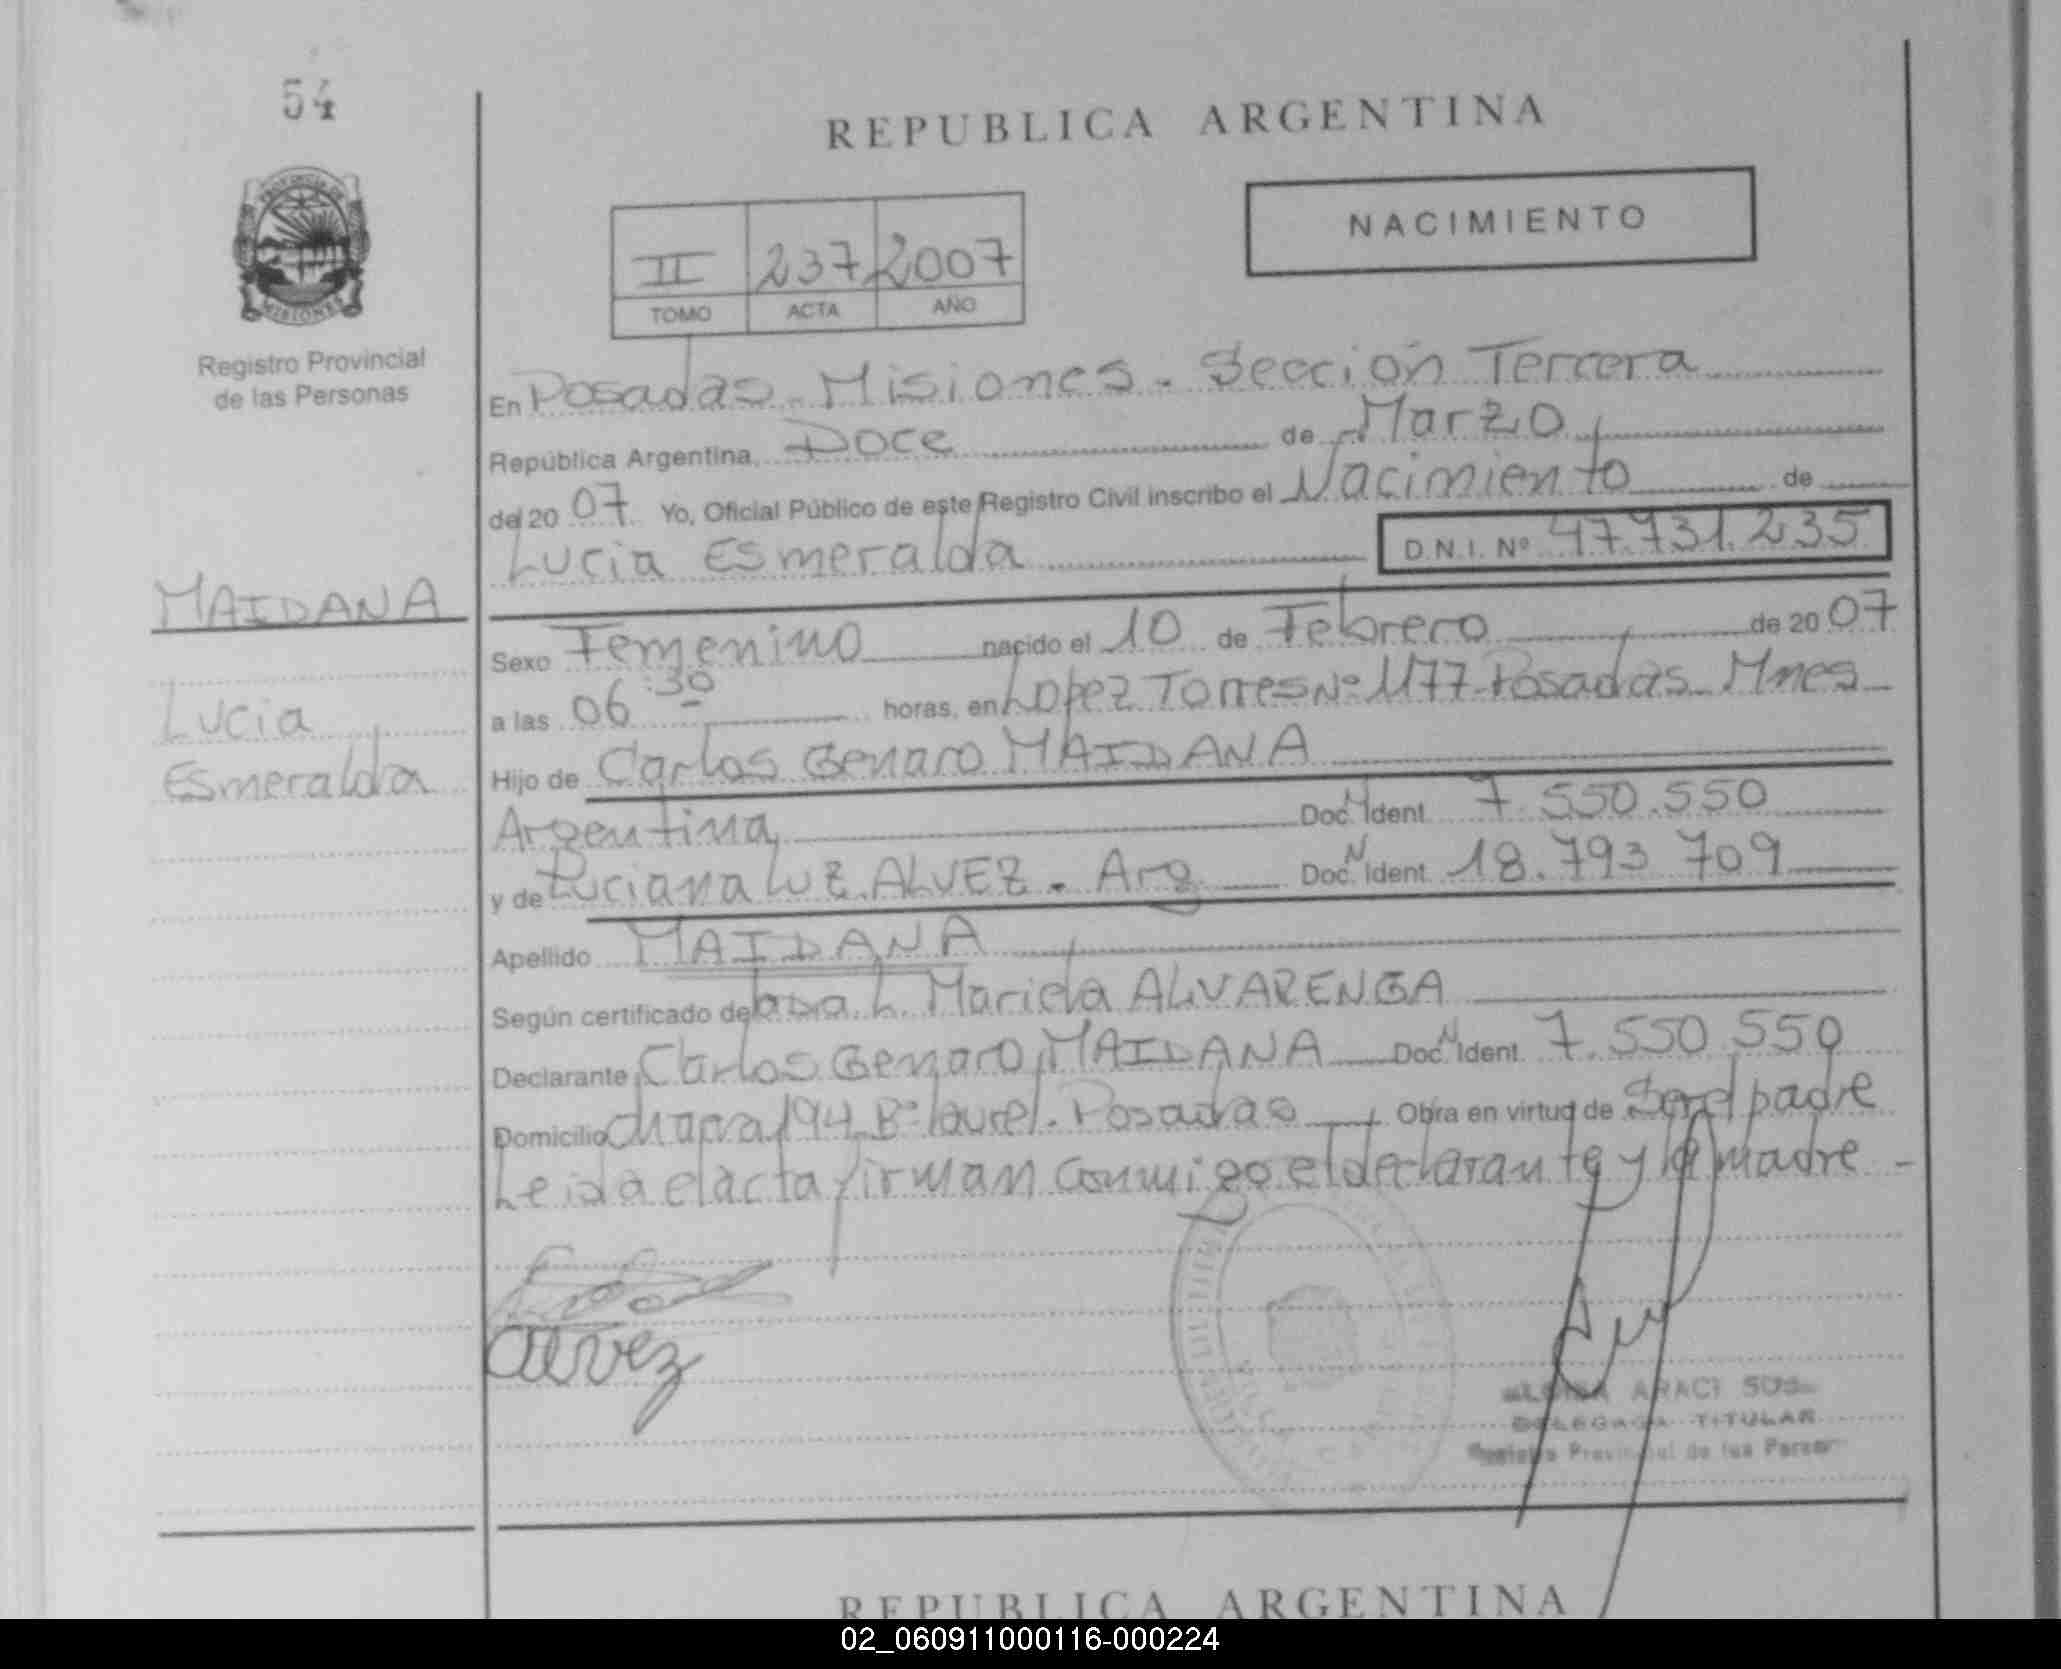 54
REPUBLICA ARGENTINA
PROVINCIA DE
MISIONES
Registro Provincial
de las Personas
NACIMIENTO
II 237 2007
TOMO ACTA AÑO
En Posadas - Misiones - Sección Tercera
República Argentina, Doce de Marzo
del 20 07 Yo, Oficial Público de este Registro Civil inscribo el Nacimiento de
Lucia Esmeralda D.N.I. Nº 47.731.235
MAIDANA
Lucia
Esmeralda
Sexo Femenino nacido el 10 de Febrero de 20 07
a las 06:30 horas, en Lopez Torres Nº 1177 - Posadas - Mnes
Hijo de Carlos Genaro MAIDANA
Argentina Doc. N Ident. 7.550.550
y de Luciana Luz ALVEZ - Arg Doc. N Ident. 18.793 709
Apellido MAIDANA
Según certificado de Mariela ALVARENGA
Declarante Carlos Genaro MAIDANA Doc. N Ident. 7.550 550
Domicilio Chacra 194 Bº laurel - Posadas Obra en virtud de Ser el padre
Leida el acta firman conmigo el declarante y la madre -
alvez
ARACI
DELEGADA TITULAR
Registro Provincial de las Person
REPUBLICA ARGENTINA
02_060911000116-000224